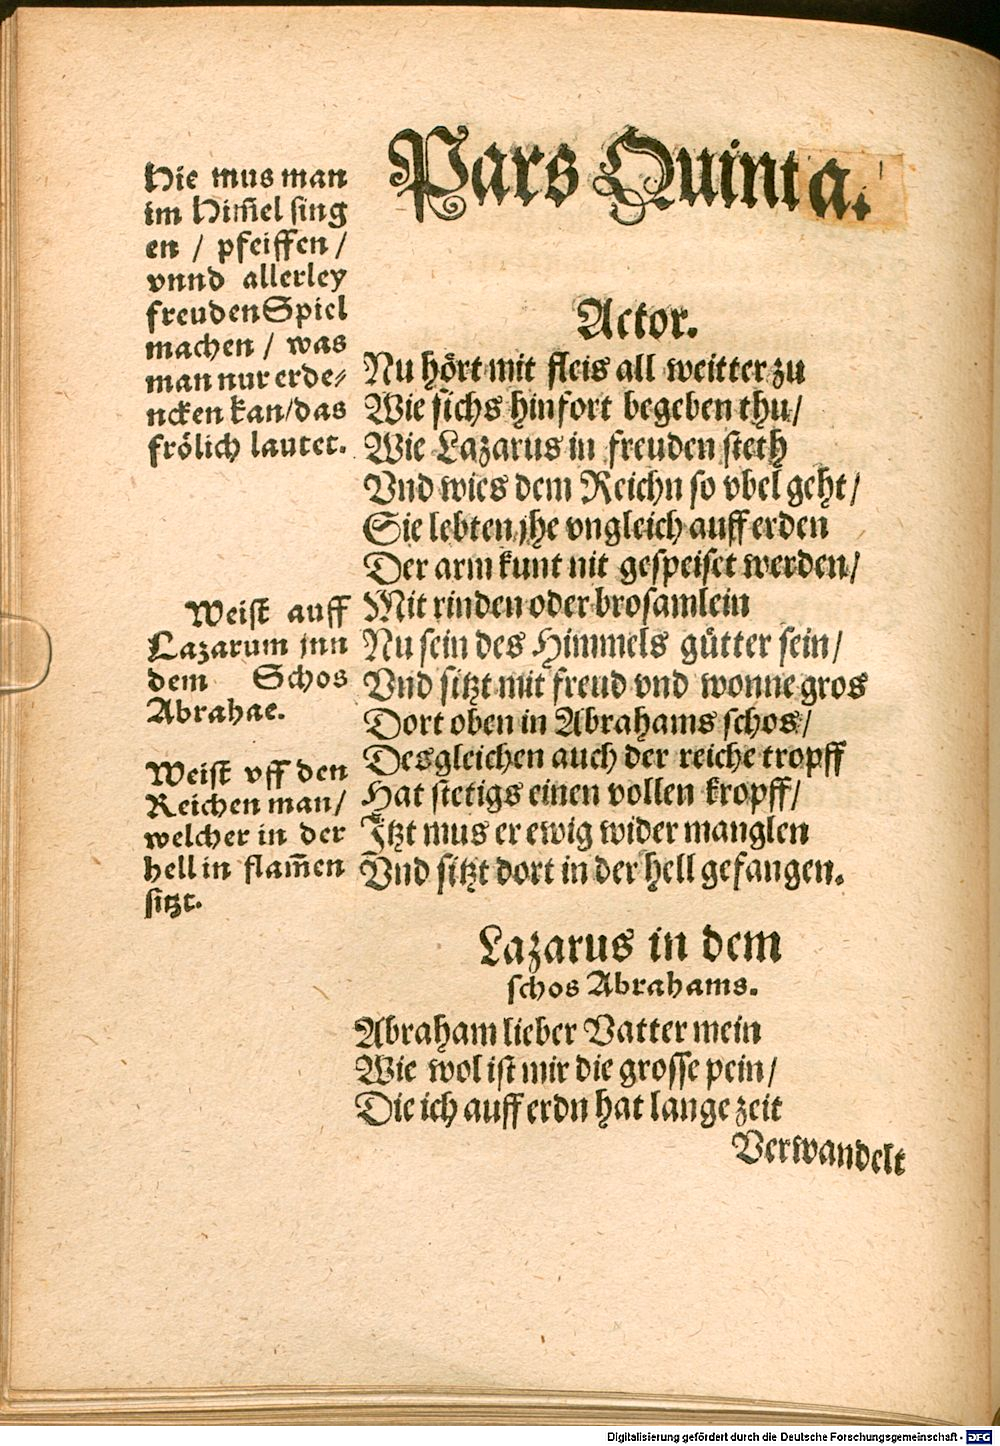 Pars Quinta.
Hie mus man
im Him̃el sing
en / pfeiffen /
vnnd allerley
freuden Spiel
machen / was
man nur erde⸗
ncken kan/das
frölich lautet.
Actor.
Nu hört mit fleis all weitter zu
Wie sichs hinfort begeben thu/
Wie Lazarus in freuden steth
Vnd wies dem Reichn so vbel geht/
Sie lebten jhe vngleich auff erden
Der arm kunt nit gespeiset werden/
Mit rinden oder brosamlein
Nu sein des Himmels gütter sein/
Vnd sitzt mit freud vnd wonne gros
Dort oben in Abrahams schos/
Desgleichen auch der reiche tropff
Hat stetigs einen vollen kropff/
Jtzt mus er ewig wider manglen
Vnd sitzt dort in der hell gefangen.
Weist auff
Lazarum jnn
dem Schos
Abrahae.
Weist vff den
Reichen man/
welcher in der
hell in flam̃en
sitzt.
Lazarus in dem
schos Abrahams.
Abraham lieber Vatter mein
Wie wol ist mir die grosse pein/
Die ich auff erdn hat lange zeit
Verwandelt
Digitalisierung gefördert durch die Deutsche Forschungsgemeinschaft - DFG